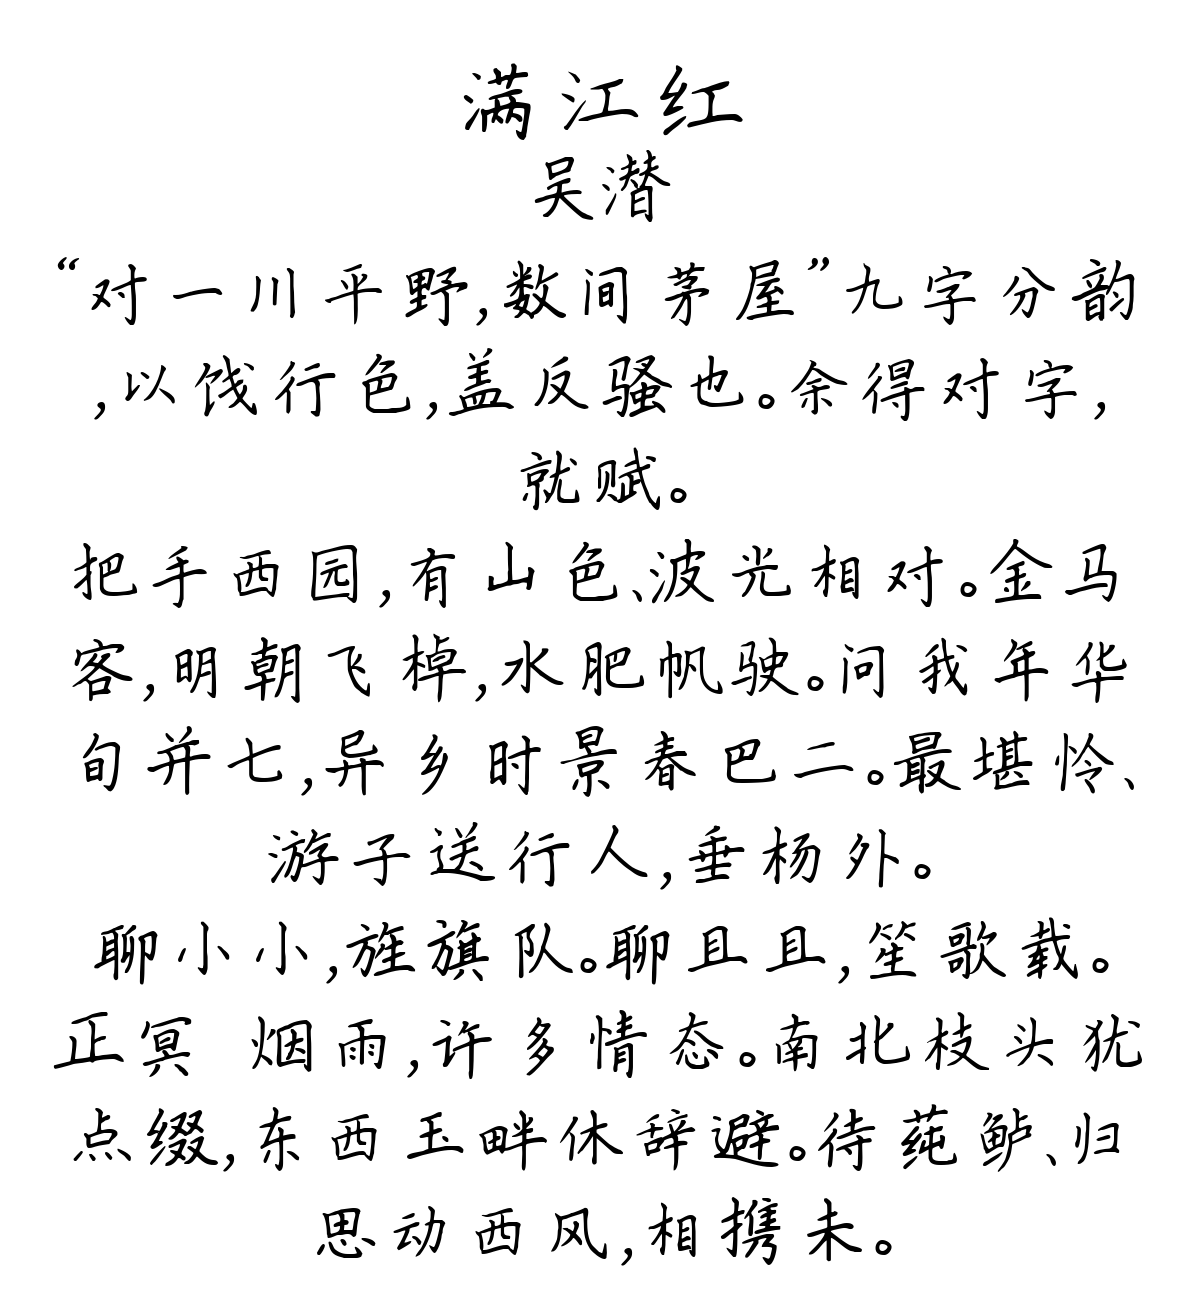 满江红
吴潜
“对一川平野,数间茅屋”九字分韵
,以饯行色,盖反骚也。余得对字,
就赋。
把手西园,有山色、波光相对。金马
客,明朝飞棹,水肥帆驶。问我年华
旬并七,异乡时景春巴二。最堪怜、
游子送行人,垂杨外。
聊小小,旌旗队。聊且且,笙歌载。
正冥 烟雨,许多情态。南北枝头犹
点缀,东西玉畔休辞避。待莼鲈、归
思动西风,相携未。